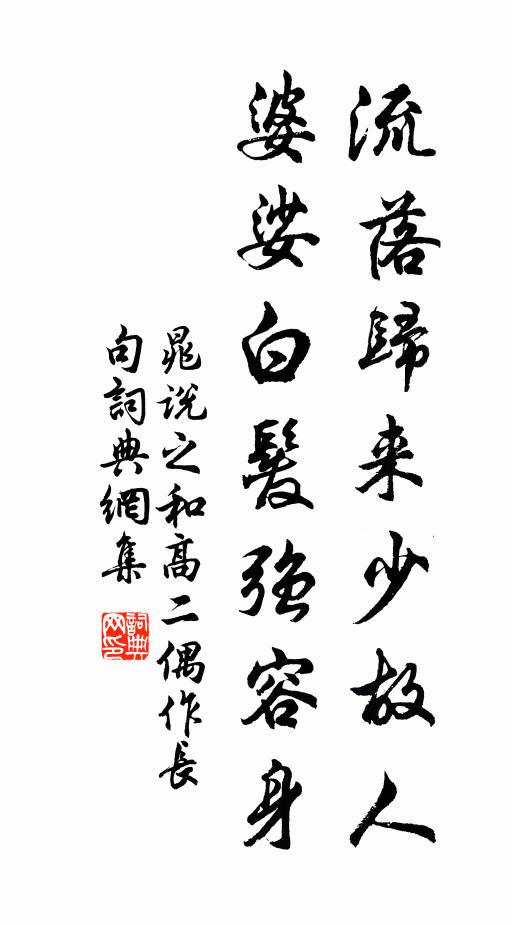 流落歸来少故人
婆娑白髮強容身
晁说之和高二偶作長
句詞典網集
詞典网印